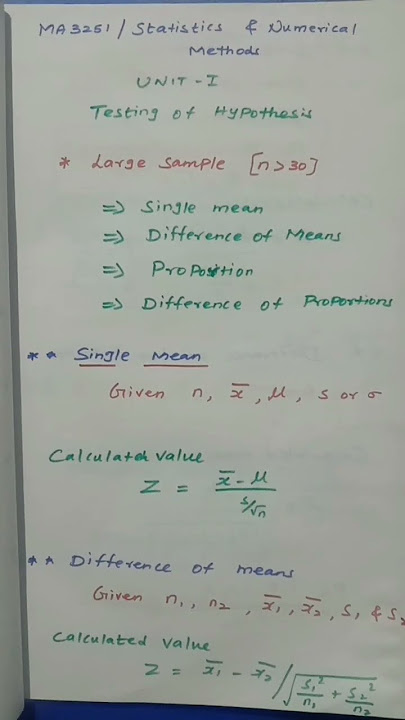 MA3251 / Statistics & Numerical
Methods
UNIT - I
Testing of Hypothesis
* Large Sample [n>30]
=> Single mean
=> Difference of Means
=> Proposition
=> Difference of Proportions
** Single Mean
Given n, x̄, μ, s or σ
Calculated value
Z = x̄ - μ / s/√n
** Difference of means
Given n₁, n₂, x̄₁, x̄₂, s₁ & s₂
Calculated value
Z = x̄₁ - x̄₂ / √(s₁²/n₁ + s₂²/n₂)